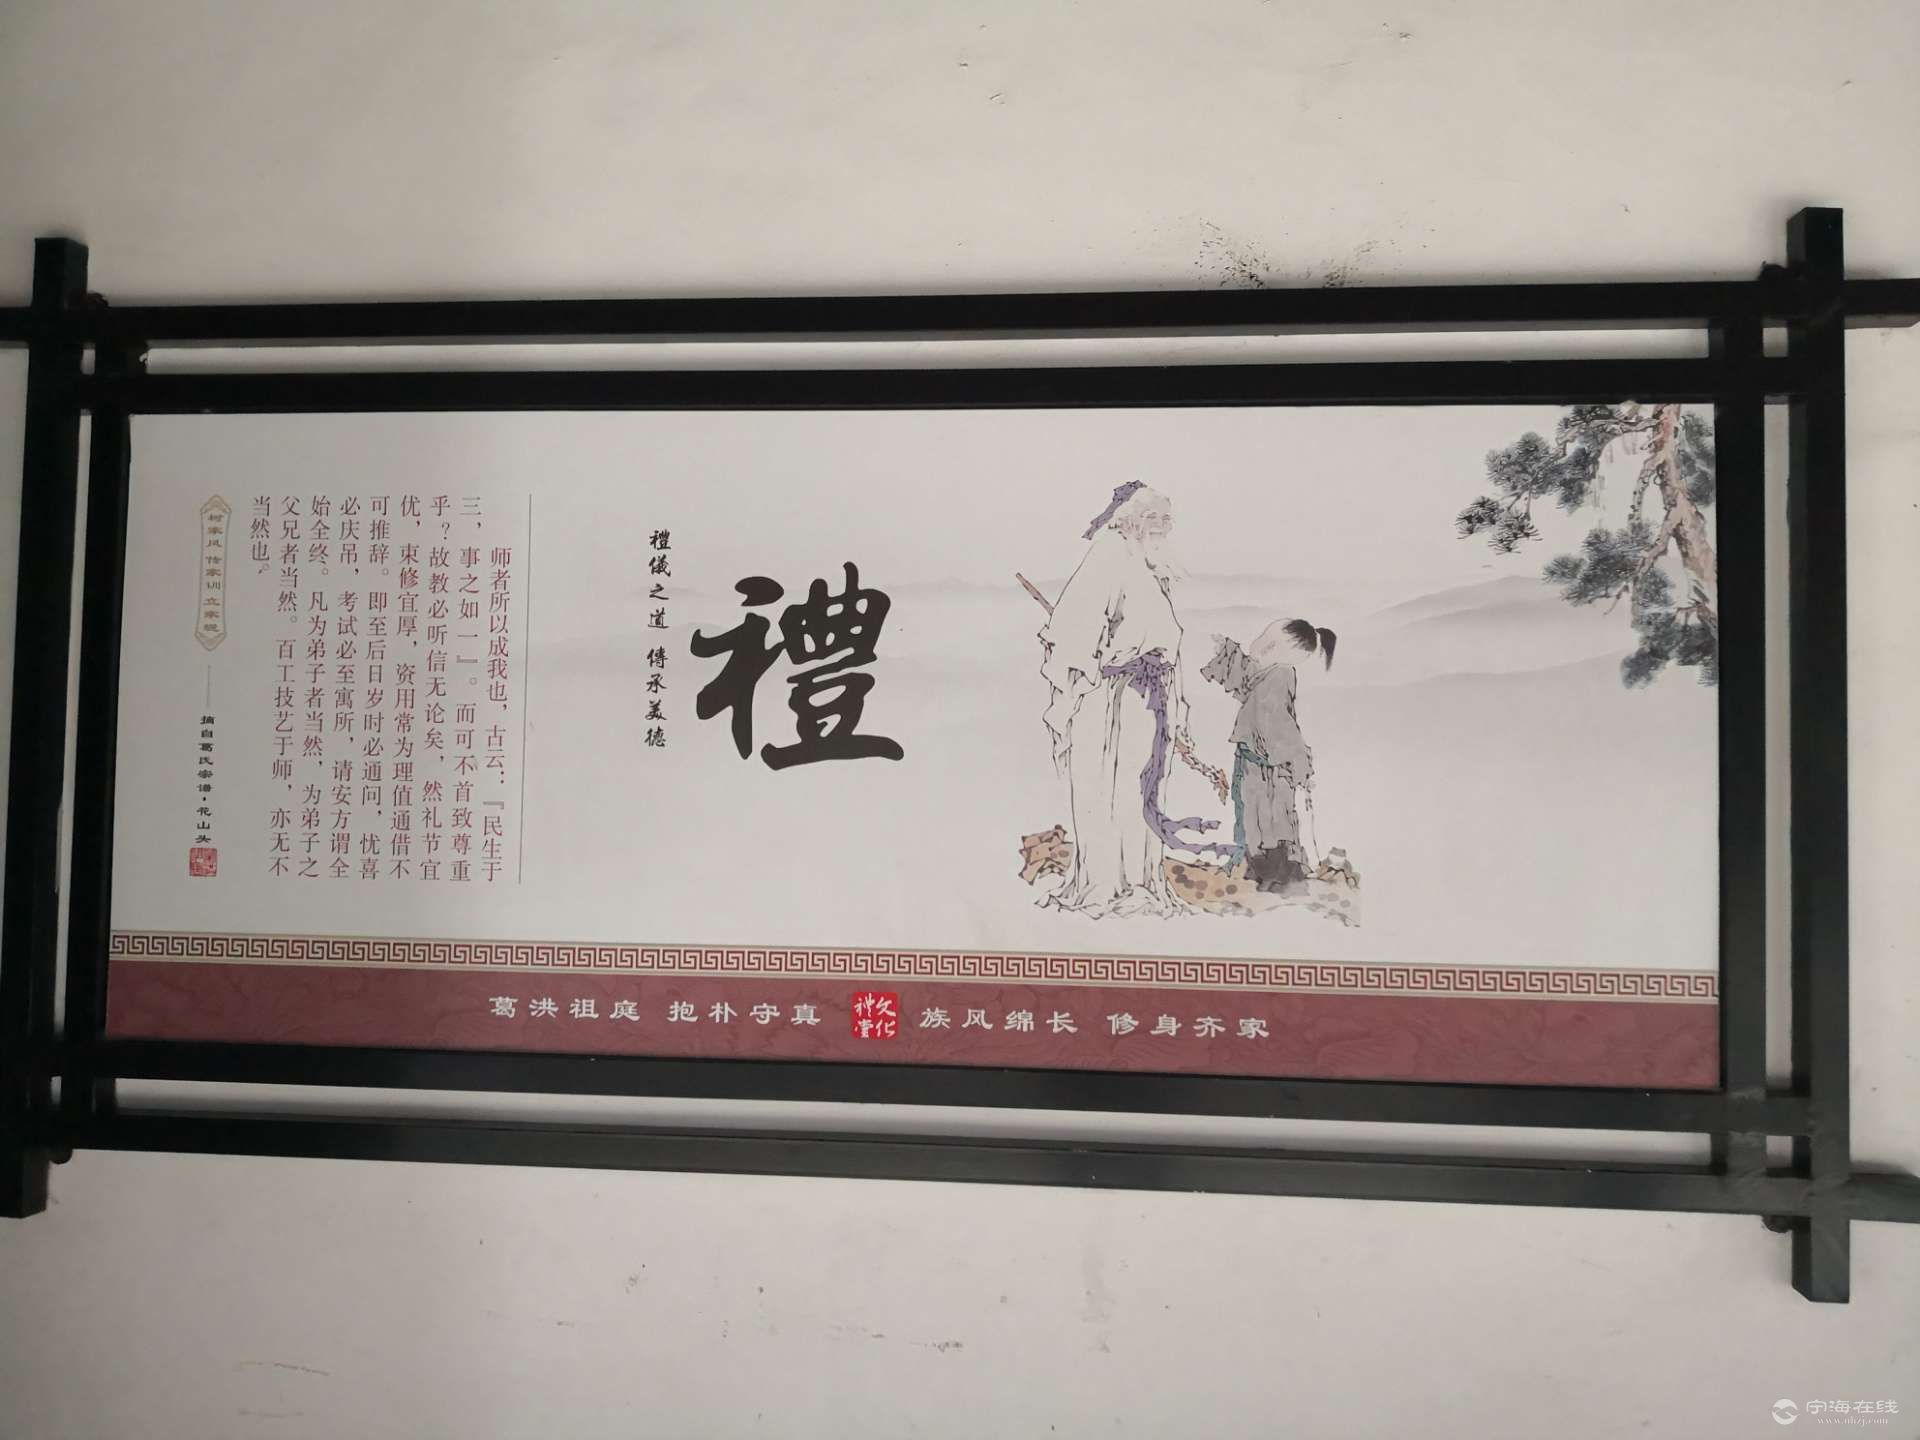 禮
禮儀之道 傳承美德
师者所以成我也，古云：『民生于
三，事之如一』。而可不首致尊重
乎？故教必听信无论矣，然礼节宜
优，束修宜厚，资用常为理值通借不
可推辞。即至后日岁时必通问，忧喜
必庆吊，考试必至寓所，请安方谓全
始全终。凡为弟子者当然，为弟子之
父兄者当然。百工技艺于师，亦无不
当然也。
树家风 传家训 立家规
——摘自葛氏宗谱·花山头
葛洪祖庭 抱朴守真 文化禮堂 族风绵长 修身齐家
宁海在线
www.nhzj.com